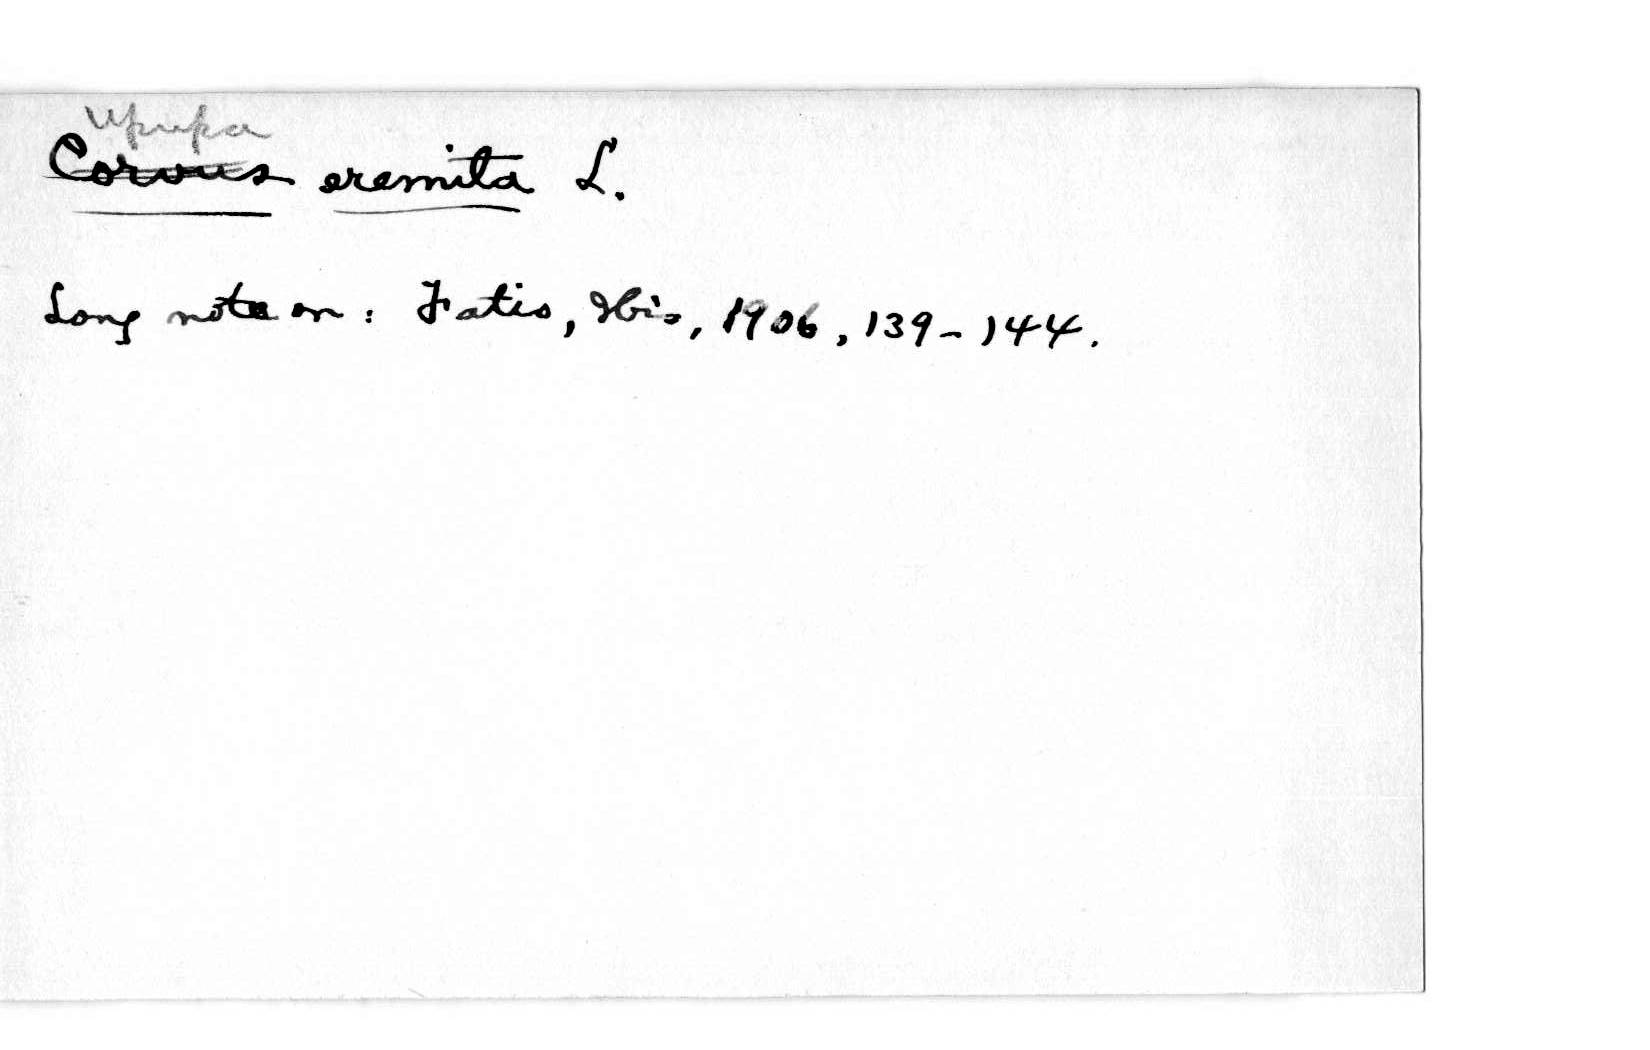 Upupa
Corvus eremita L.
Long note on: Fatio, Ibis, 1906, 139-144.